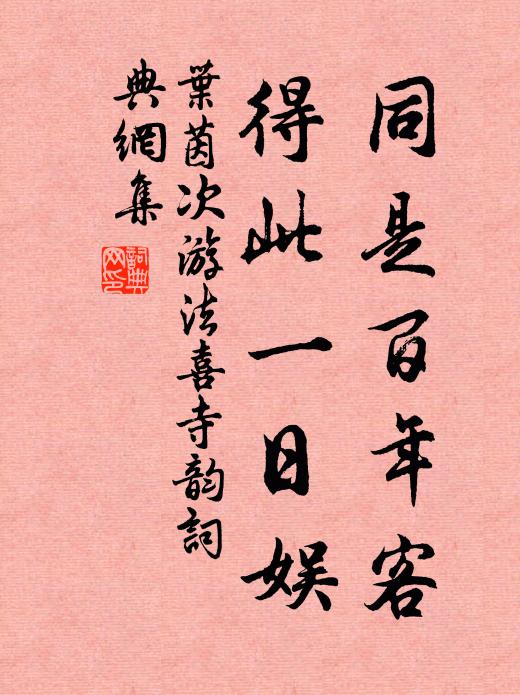 同是百年客
得此一日娱
葉茵次游法喜寺韵詞
典網集
詞典
网印